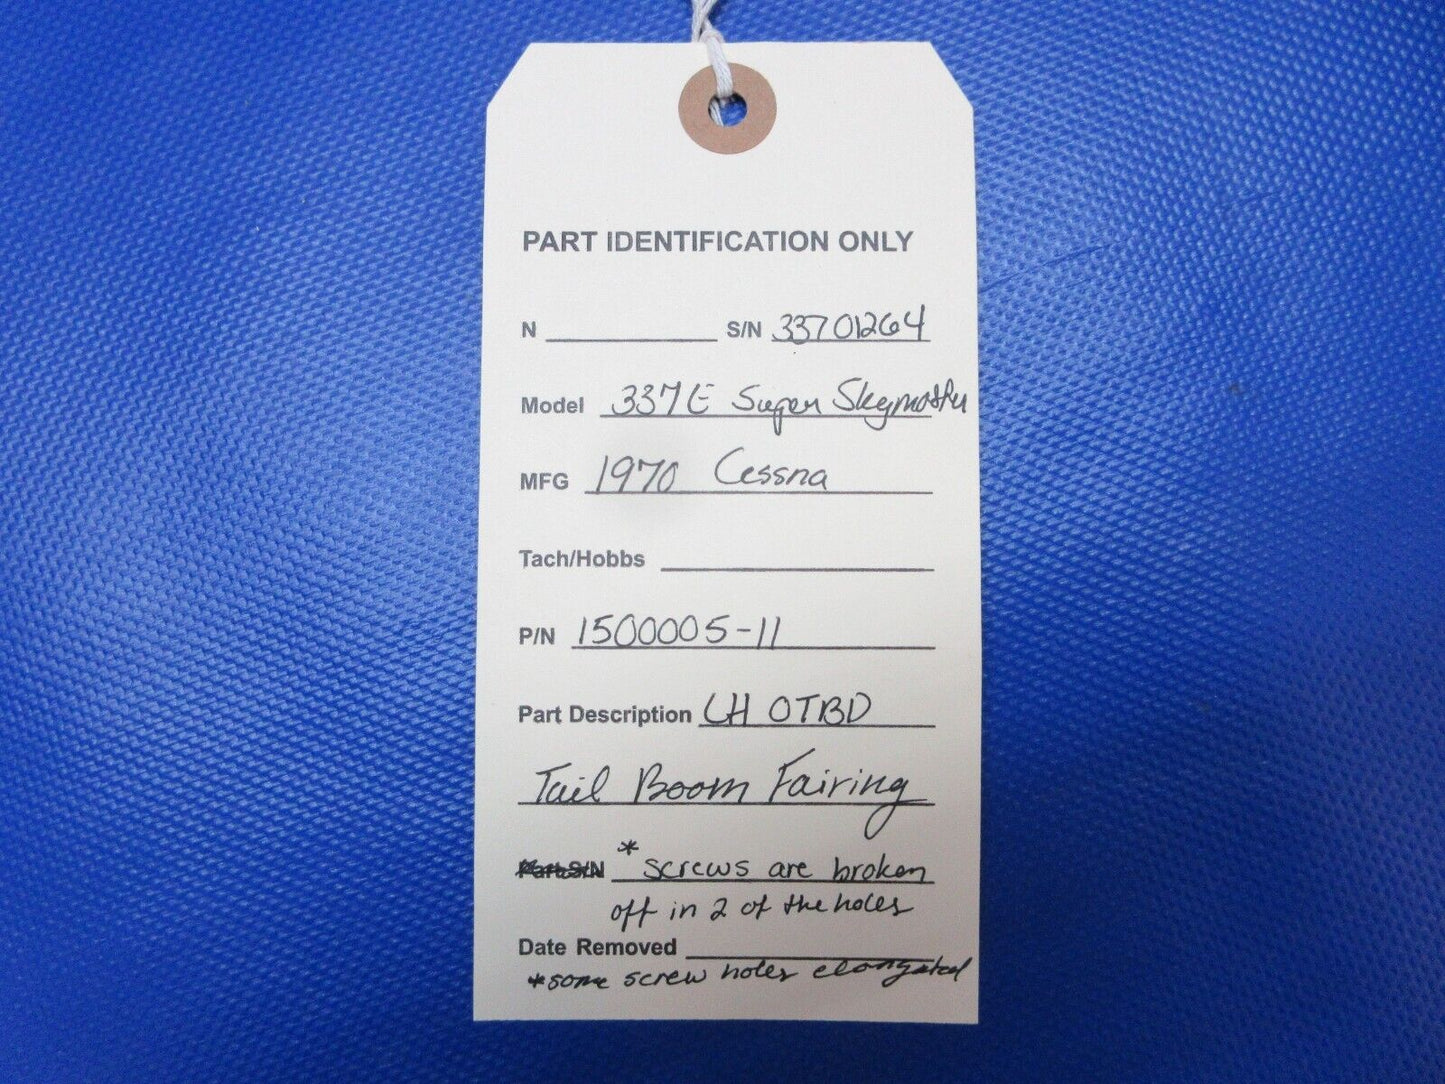 PART IDENTIFICATION ONLY
N S/N 33701264
Model 337E Super Skymaster
MFG 1970 Cessna
Tach/Hobbs
P/N 1500005-11
Part Description LH OTBD
Tail Boom Fairing
Part S/N * screws are broken
off in 2 of the holes
Date Removed
*some screw holes elongated